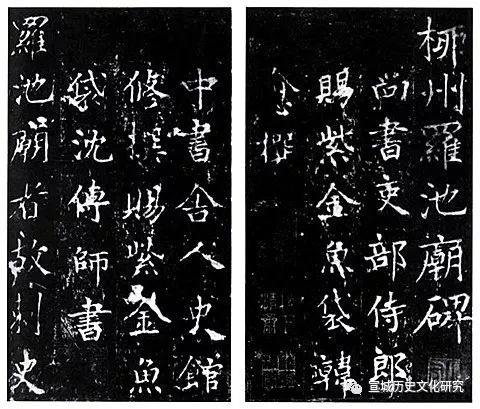 柳州羅池廟碑
尚書吏部侍郎
賜紫金魚袋韓
愈撰
中書舍人史館
修撰賜紫金魚
袋沈傳師書
羅池廟者故刺史
宣城历史文化研究